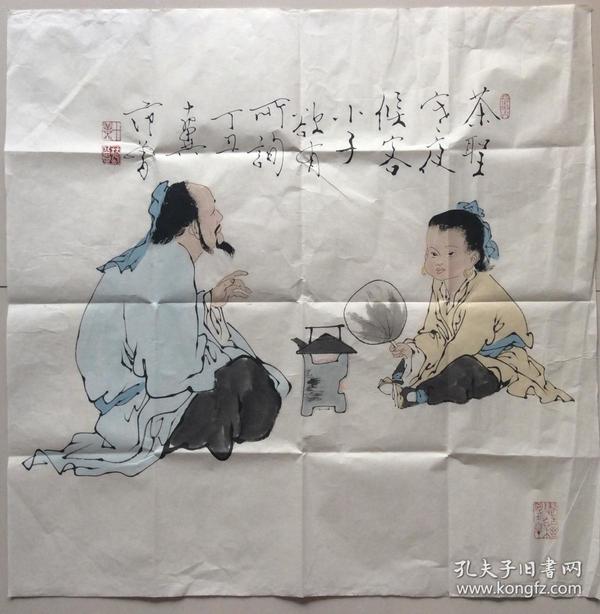 茶聖
夜
候客
小子
欲有
所詢
丁丑
十翼
范曾
孔夫子旧書网
www.kongfz.com